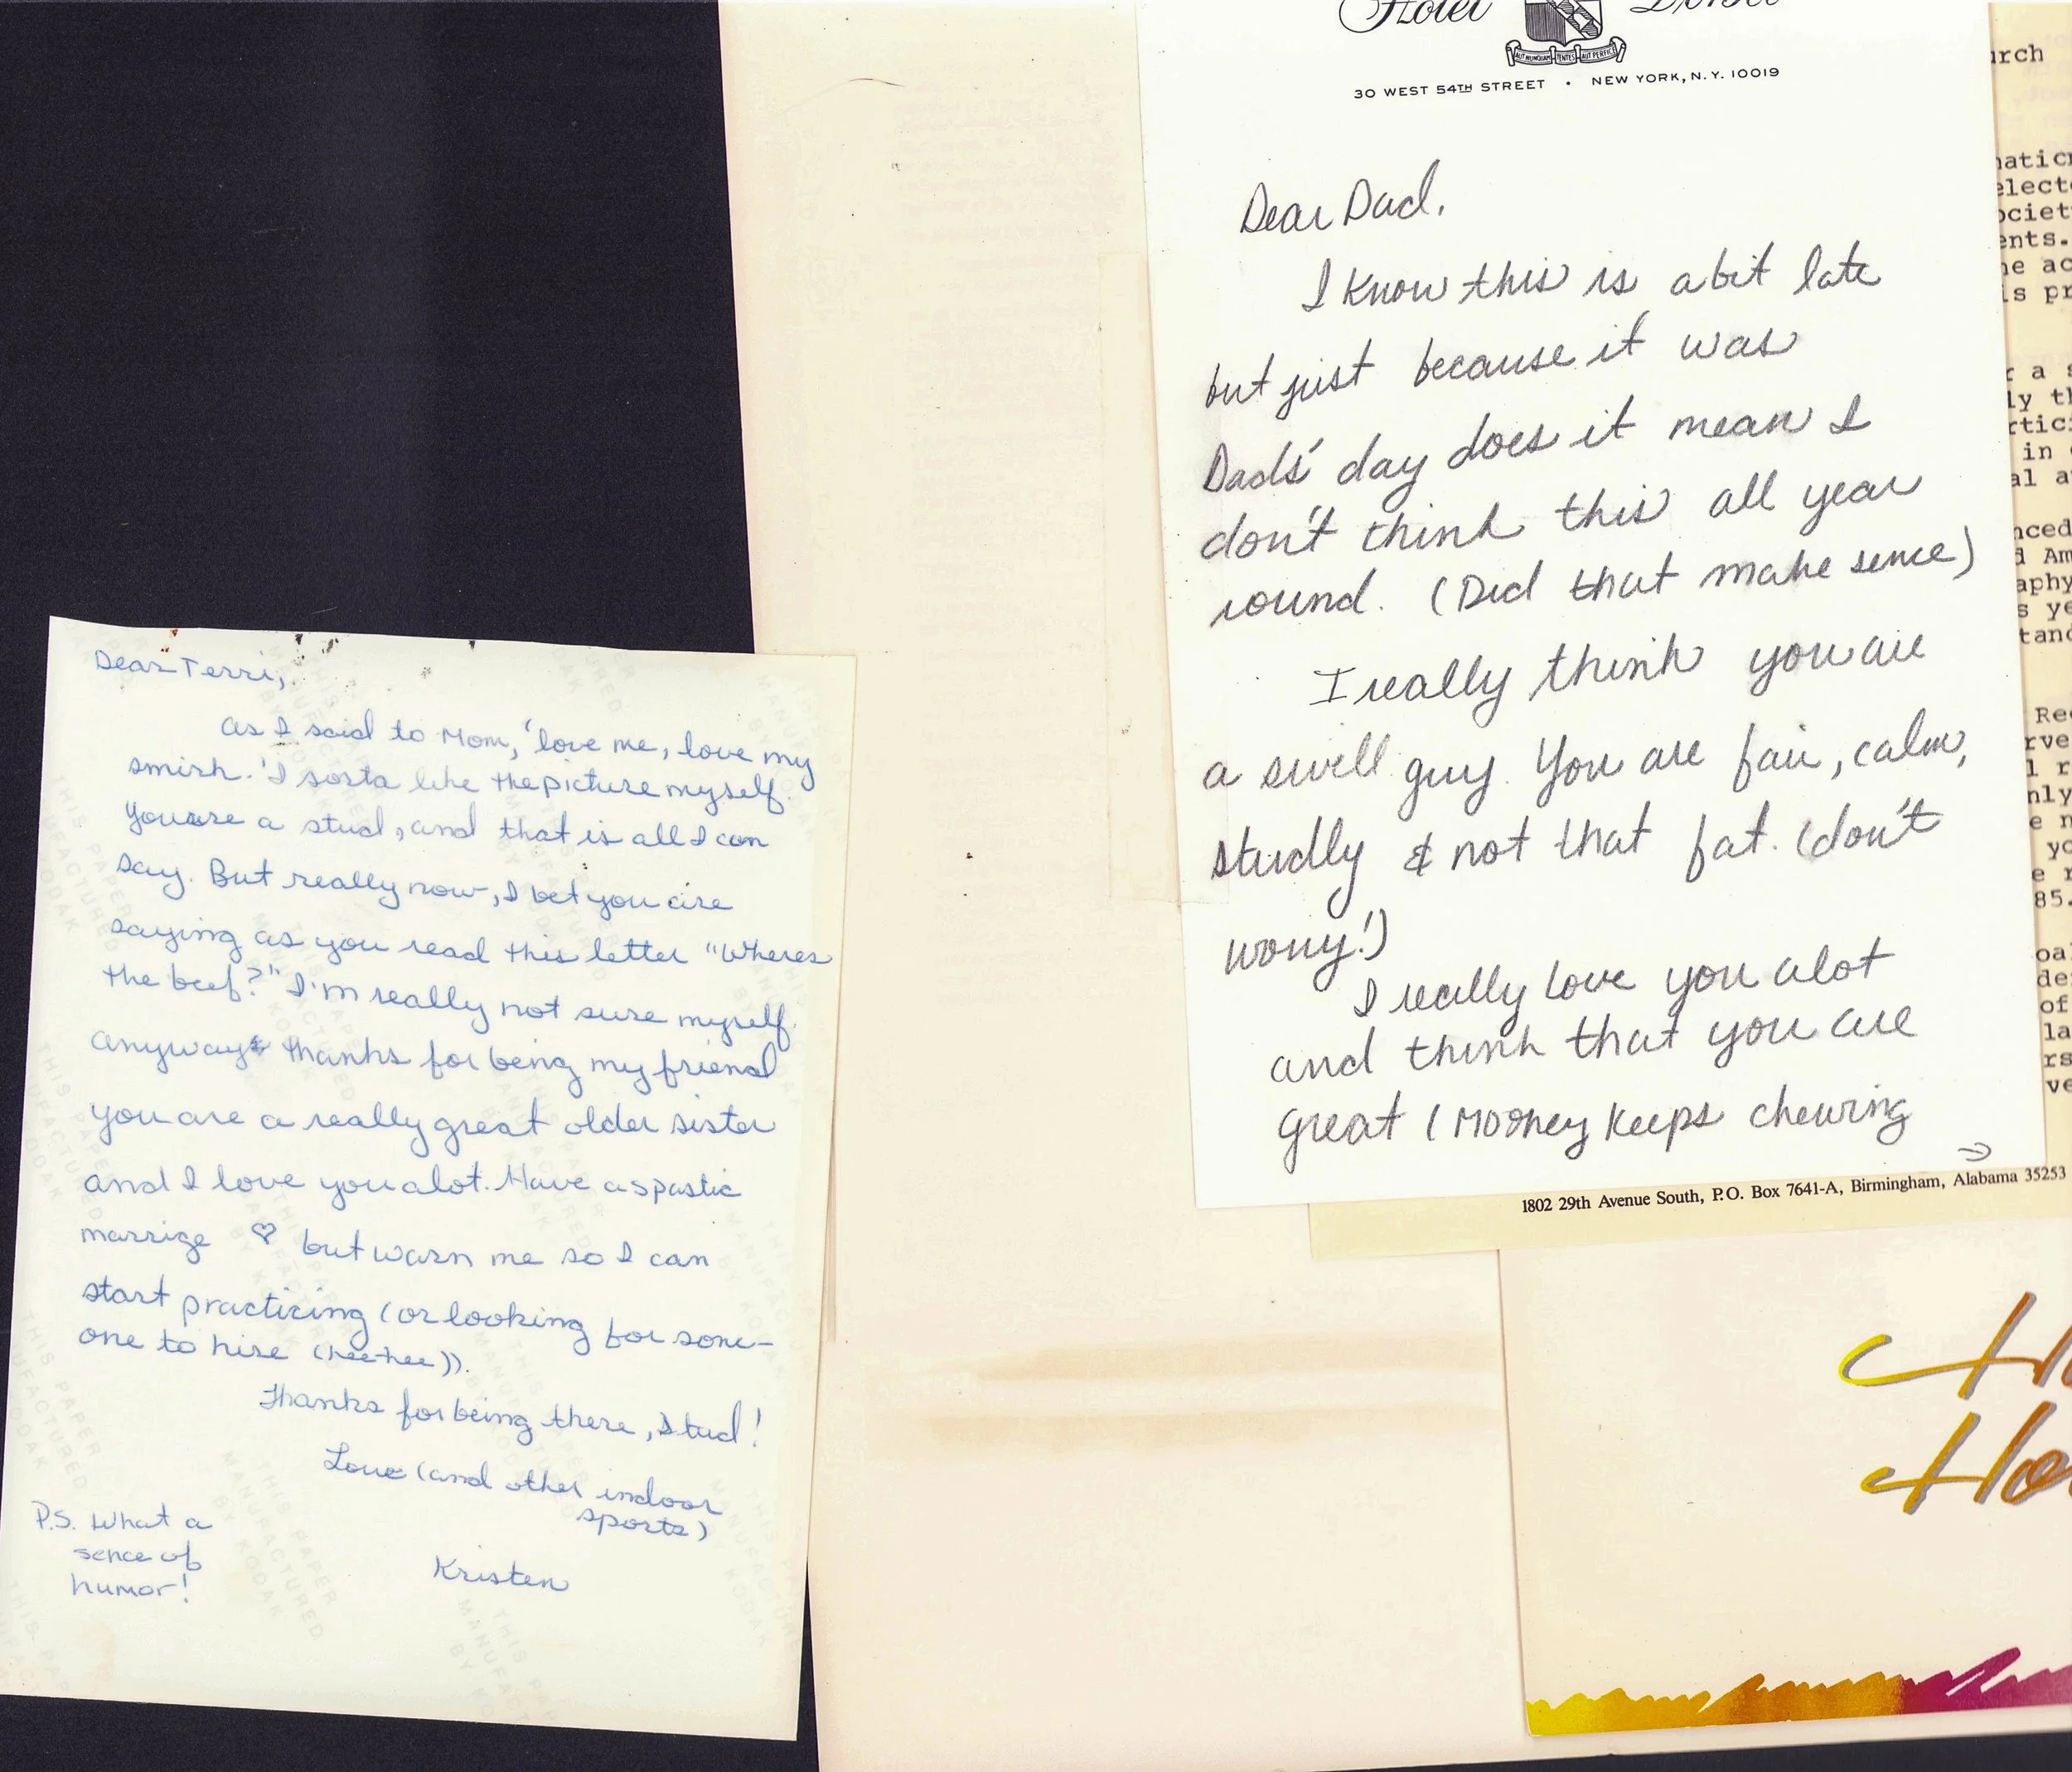 Dear Terri,
As I said to Mom, 'love me, love my
smirk.' I sorta like the picture myself.
You are a stud, and that is all I can
say. But really now, I bet you are
saying as you read this letter "Wheres
the beef?" I'm really not sure myself.
Anyways thanks for being my friend
you are a really great older sister
and I love you alot. Have a spastic
marrige ♡ but warn me so I can
start practicing (or looking for some-
one to hire (hee-hee)).
Thanks for being there, Stud!
Love (and other indoor
sports)
Kristen
P.S. What a
sence of
humor!
THIS PAPER
MANUFACTURED
BY KODAK
Hotel
AUT NUNQUAM TENTES AUT PERFICE
30 WEST 54TH STREET • NEW YORK, N.Y. 10019
Dear Dad,
I know this is a bit late
but just because it was
Dads' day does it mean I
don't think this all year
round. (Did that make sence)
I really think you are
a swell guy. You are fair, calm,
studly & not that fat. (don't
worry!)
I really love you alot
and think that you are
great (Mooney keeps chewing
→
1802 29th Avenue South, P.O. Box 7641-A, Birmingham, Alabama 35253
urch
naticn
elect
ociet
ents.
he ac
is pr
r a s
ly th
rtici
in
al a
nced
d Am
aphy
s ye
tand
Rec
rve
l r
nly
e n
yo
e r
85.
oa
de
of
la
rs
ve